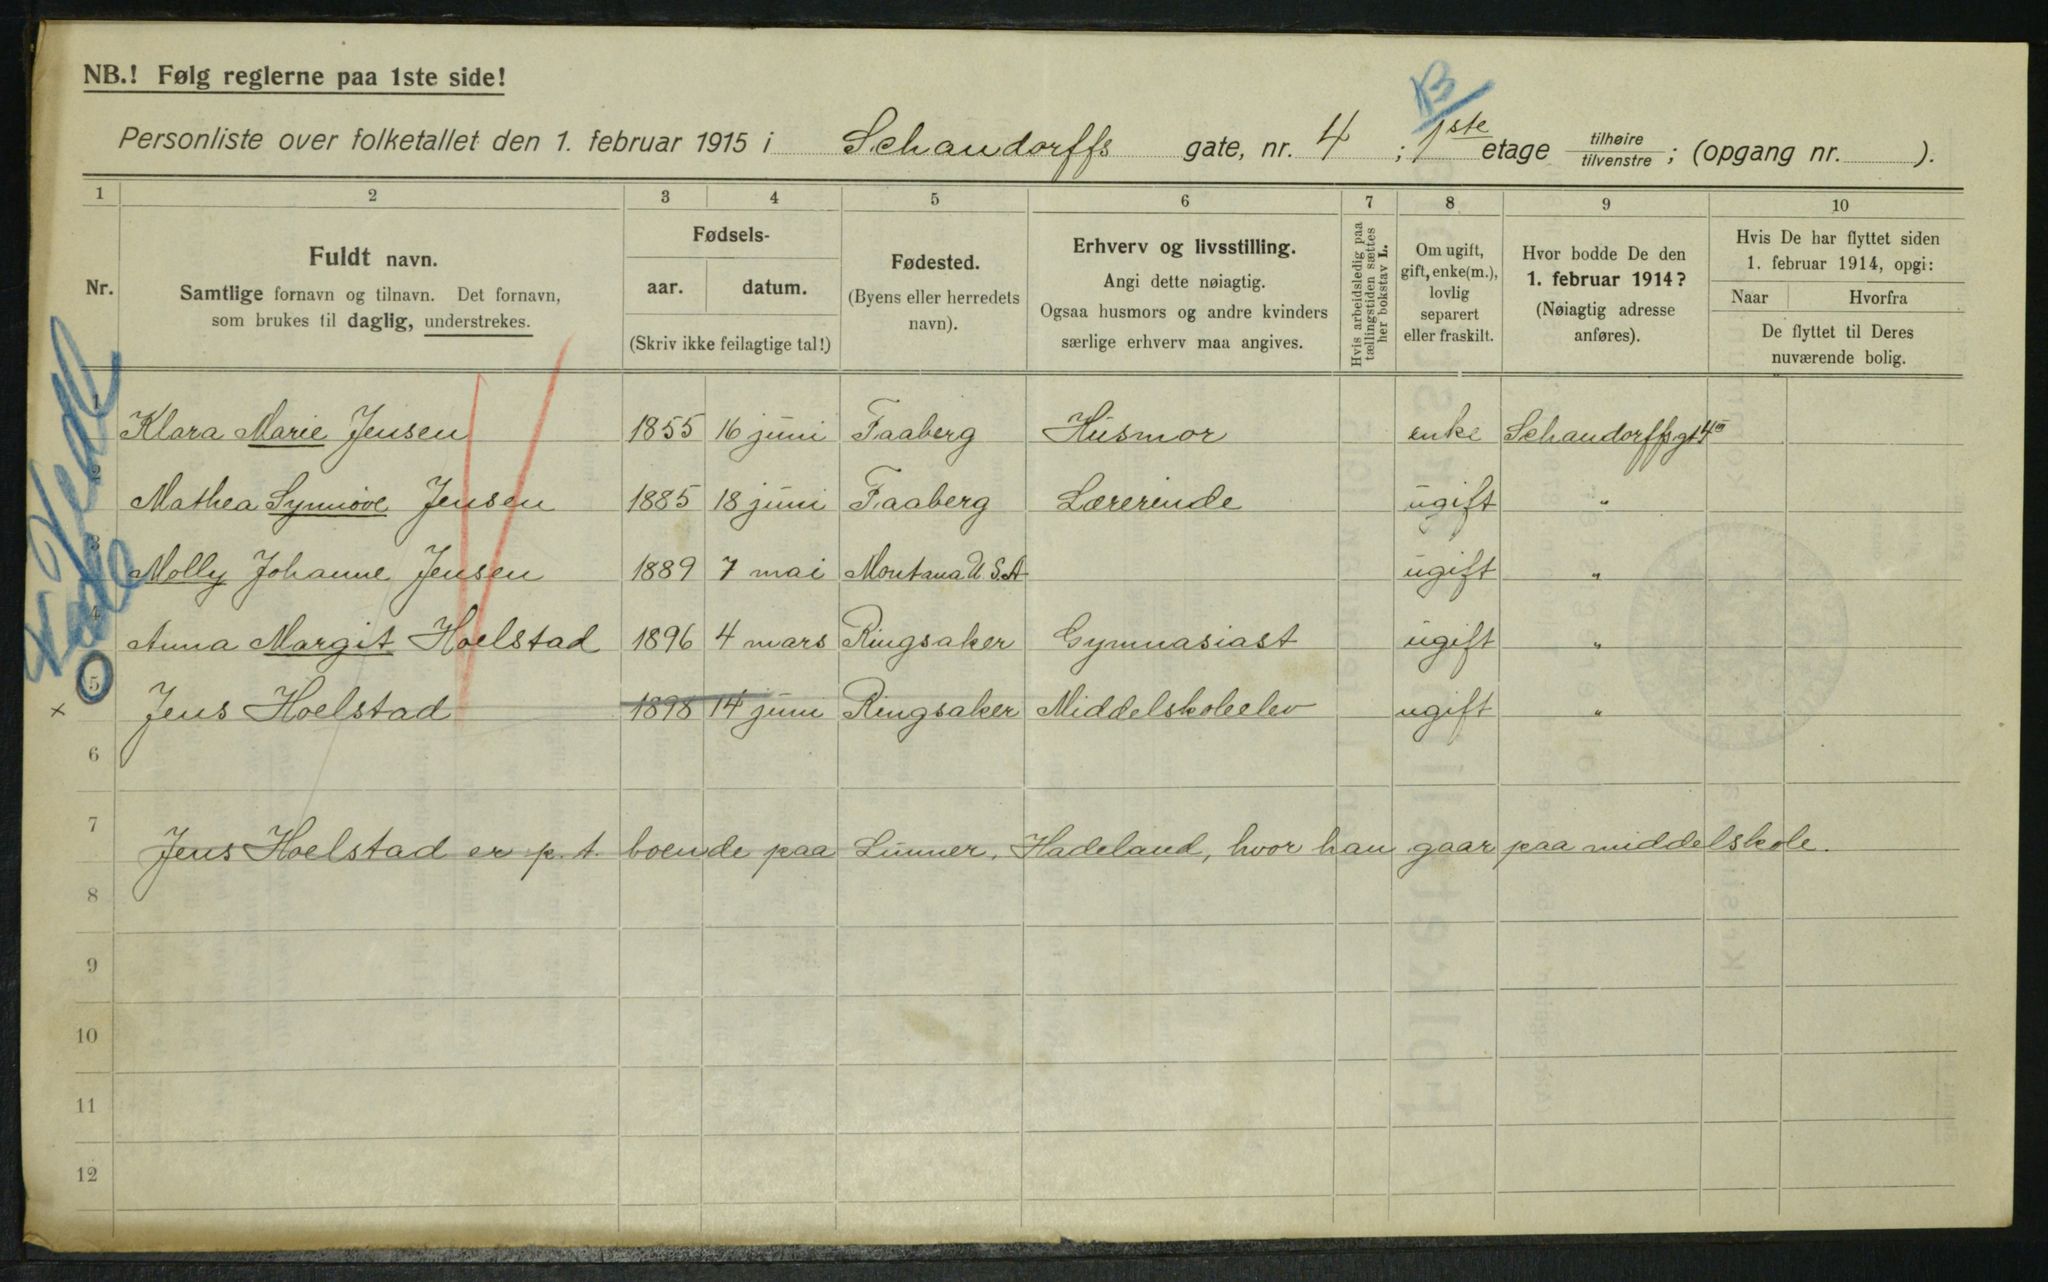 NB.! Følg reglerne paa 1ste side!
B
Personliste over folketallet den 1. februar 1915 i Schandorffs gate, nr. 4 ; 1ste etage tilhøire tilvenstre ; (opgang nr. ).
1 2 3 4 5 6 7 8 9 10
Nr.
Fuldt navn.
Samtlige fornavn og tilnavn. Det fornavn,
som brukes til daglig, understrekes.
Fødsels-
aar. datum.
(Skriv ikke feilagtige tal!)
Fødested.
(Byens eller herredets
navn).
Erhverv og livsstilling.
Angi dette nøiagtig.
Ogsaa husmors og andre kvinders
særlige erhverv maa angives.
Hvis arbeidsledig paa
tællingstiden sættes
her bokstav L.
Om ugift,
gift, enke(m.),
lovlig
separert
eller fraskilt.
Hvor bodde De den
1. februar 1914?
(Nøiagtig adresse
anføres).
Hvis De har flyttet siden
1. februar 1914, opgi:
Naar Hvorfra
De flyttet til Deres
nuværende bolig.
1 Klara Marie Jensen 1855 16 juni Faaberg Husmor enke Schandorffsgt 4
2 Mathea Synnöve Jensen 1885 18 juni Faaberg Lærerinde ugift "
3 Molly Johanne Jensen 1889 7 mai Montana U.S.A ugift "
4 Anna Margit Hoelstad 1896 4 mars Ringsaker Gymnasiast ugift "
5 x Jens Hoelstad 1898 14 juni Ringsaker Middelskoleelev ugift "
6
7 Jens Hoelstad er p.t. boende paa Lunner, Hadeland, hvor han gaar paa middelskole.
8
9
10
11
12